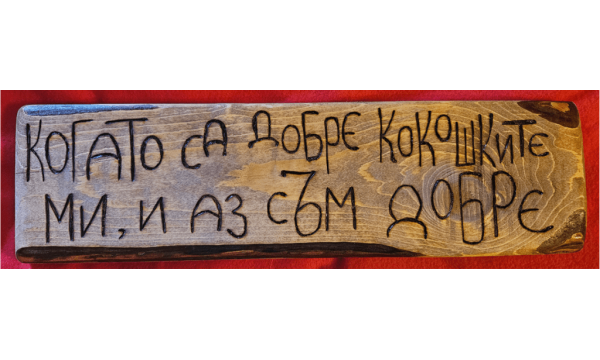 КОГАТО СА ДОБРЕ КОКОШКИТЕ
МИ, И АЗ СЪМ ДОБРЕ